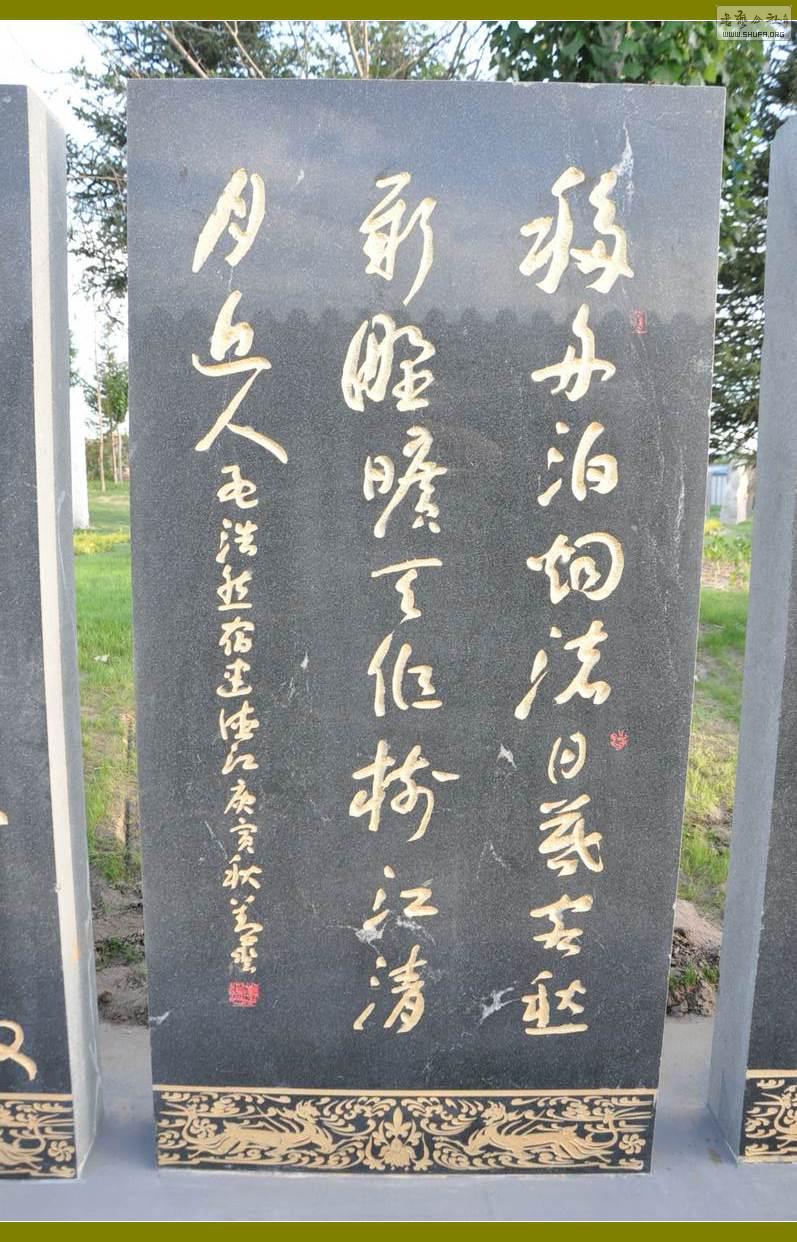 移舟泊烟渚日暮客愁
新野曠天低樹江清
月近人孟浩然宿建德江庚寅秋
WWW.SHUFA.ORG